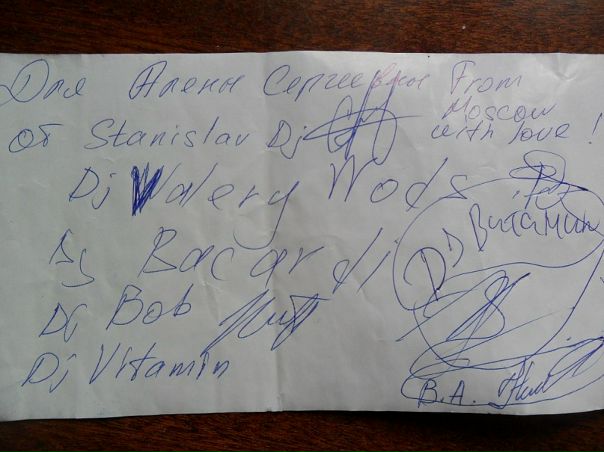 Для Алены Сергеевны From
Moscow
от Stanislav Dj with love!
Dj Valery Wods
Dj Bacardi
Dj Витамин
Dj Bob
Dj Vitamin
В.А.